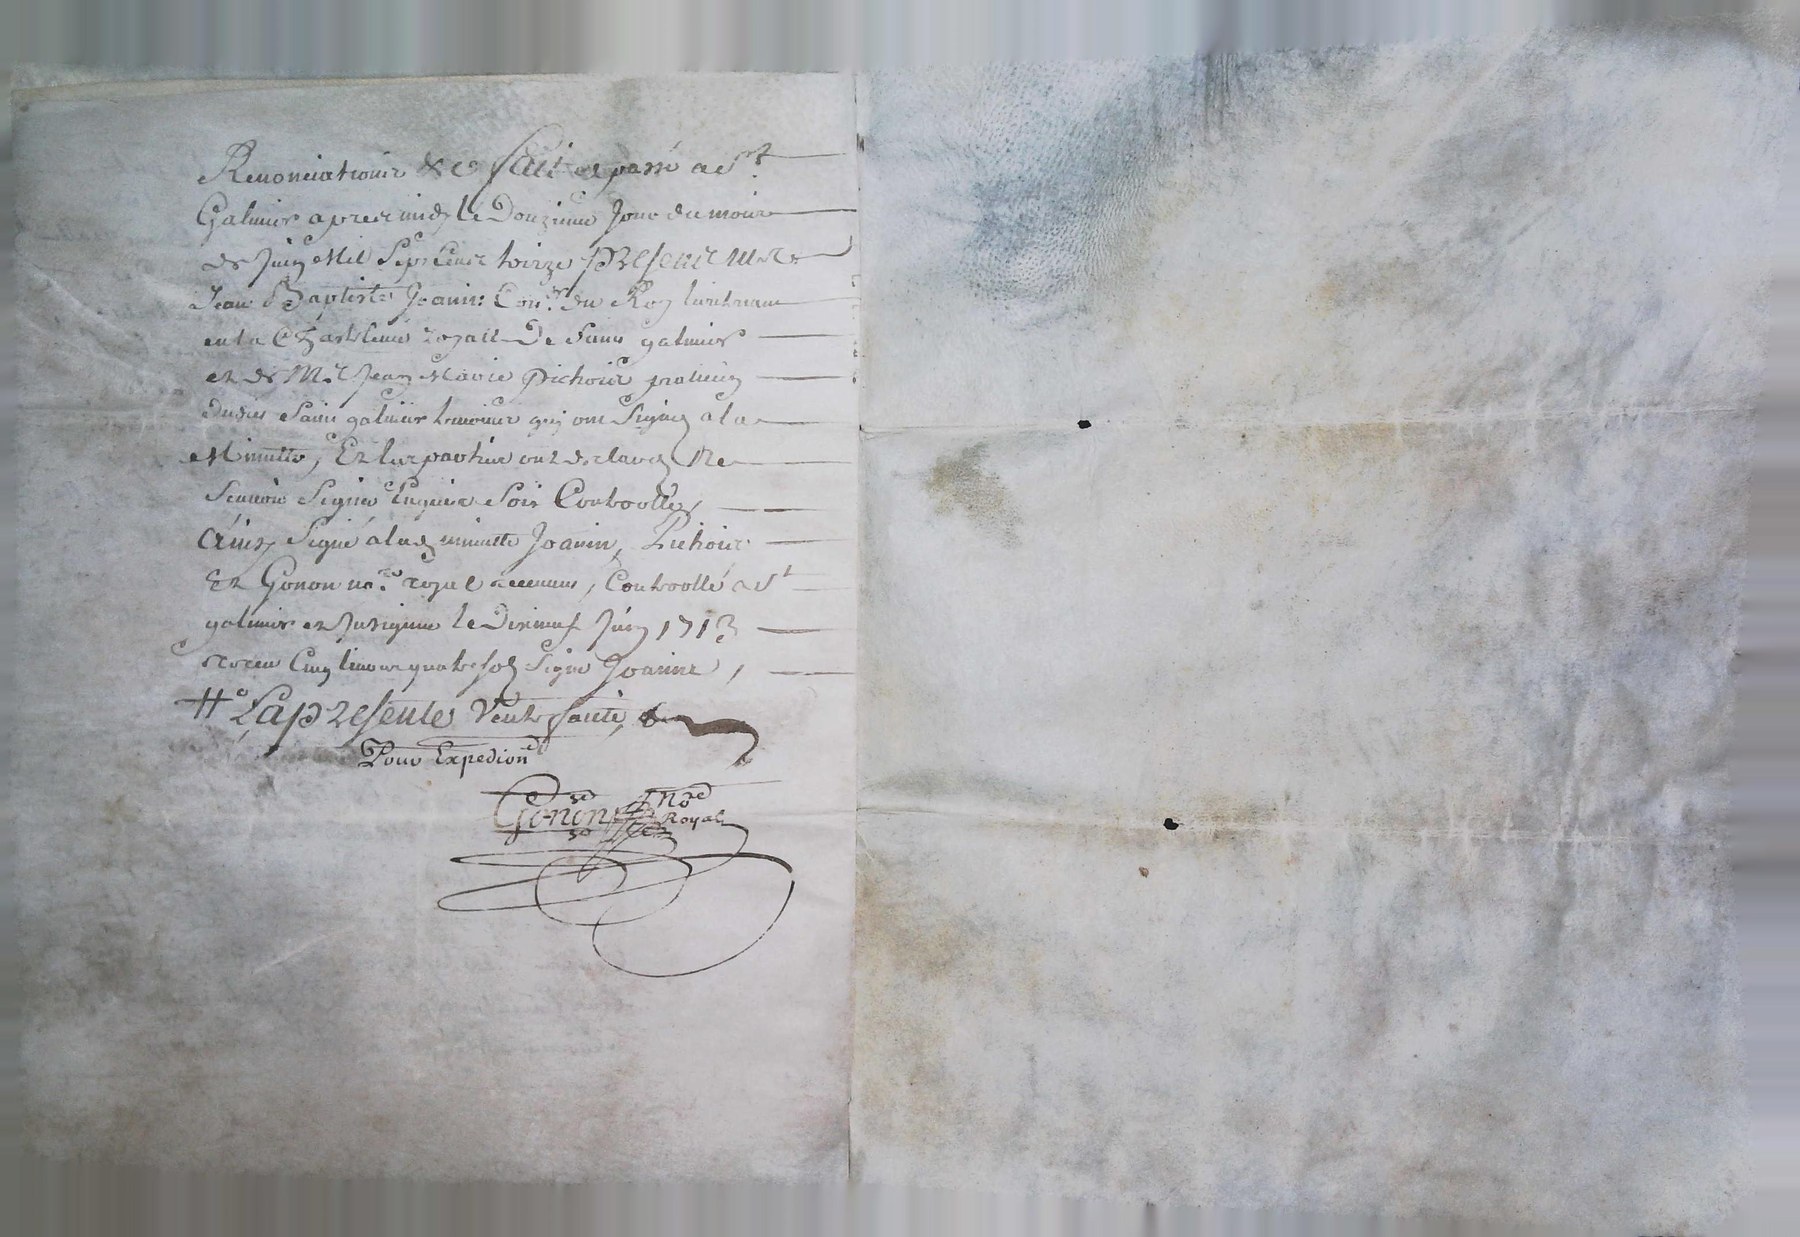 Renonciations &c fait et passé a St
Galmier apres midy le Douzieme Jour du mois
de Juin Mil Sept Cents treize presents Mre
Jean Baptiste Joanin Conser du Roy lieutenant
en la Chastelenie royalle De Saint galmier
et de Mre Jean Marie Pichois praticien
dudit Saint galmier temoins qui ont Signez a la
Minutte, Et les parties ont declarez Ne
Scavoir Signer Enquis Soit Controollé,
Ainsy Signé a la minutte Joanin, Pichois
Et Gonon nore royal, Controollé a St
galmier le Dixneuf Juin 1713
receu Cinq livres quatre sols Signé Joanin,
# La presente Vente faite,
Pour Expedion
Gonon Nore
Royal